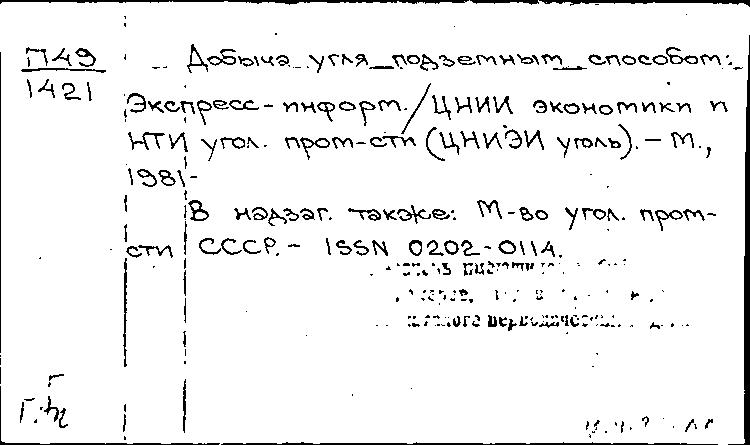 П49
1421
Добыча угля подземным способом:
Экспресс-информ. / ЦНИИ экономики и
НТИ угол. пром-сти (ЦНИЭИ уголь). – М.,
1981-
В надзаг. также: М-во угол. пром-
сти СССР. – ISSN 0202-0114.